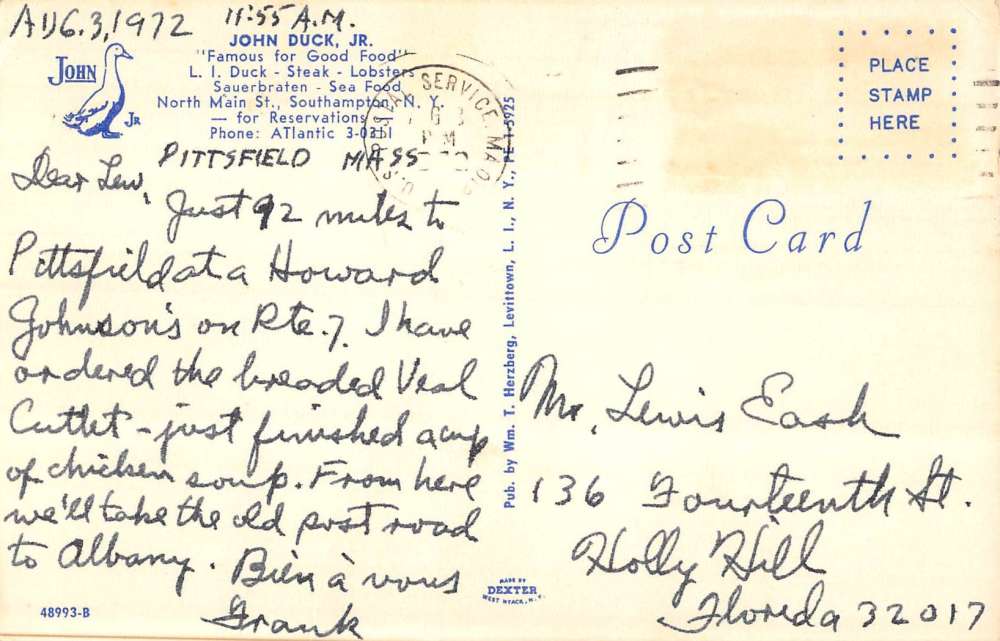 AUG. 3, 1972 11:55 A.M.
JOHN
JR
JOHN DUCK, JR.
"Famous for Good Food"
L. I. Duck - Steak - Lobsters
Sauerbraten - Sea Food
North Main St., Southampton, N. Y.
— for Reservations —
Phone: ATlantic 3-0311
PITTSFIELD MASS
Dear Lew,
Just 92 miles to
Pittsfield at a Howard
Johnson's on Rte. 7. I have
ordered the breaded Veal
Cutlet - just finished a cup
of chicken soup. From here
we'll take the old post road
to Albany. Bien à vous
Frank
48993-B
Pub. by Wm. T. Herzberg, Levittown, L. I., N. Y., PE 1-5925
MADE BY
DEXTER
WEST NYACK, N.Y.
SERVICE, MA
PM
PLACE
STAMP
HERE
Post Card
Mr. Lewis Eash
136 Fourteenth St.
Holly Hill
Florida 32017